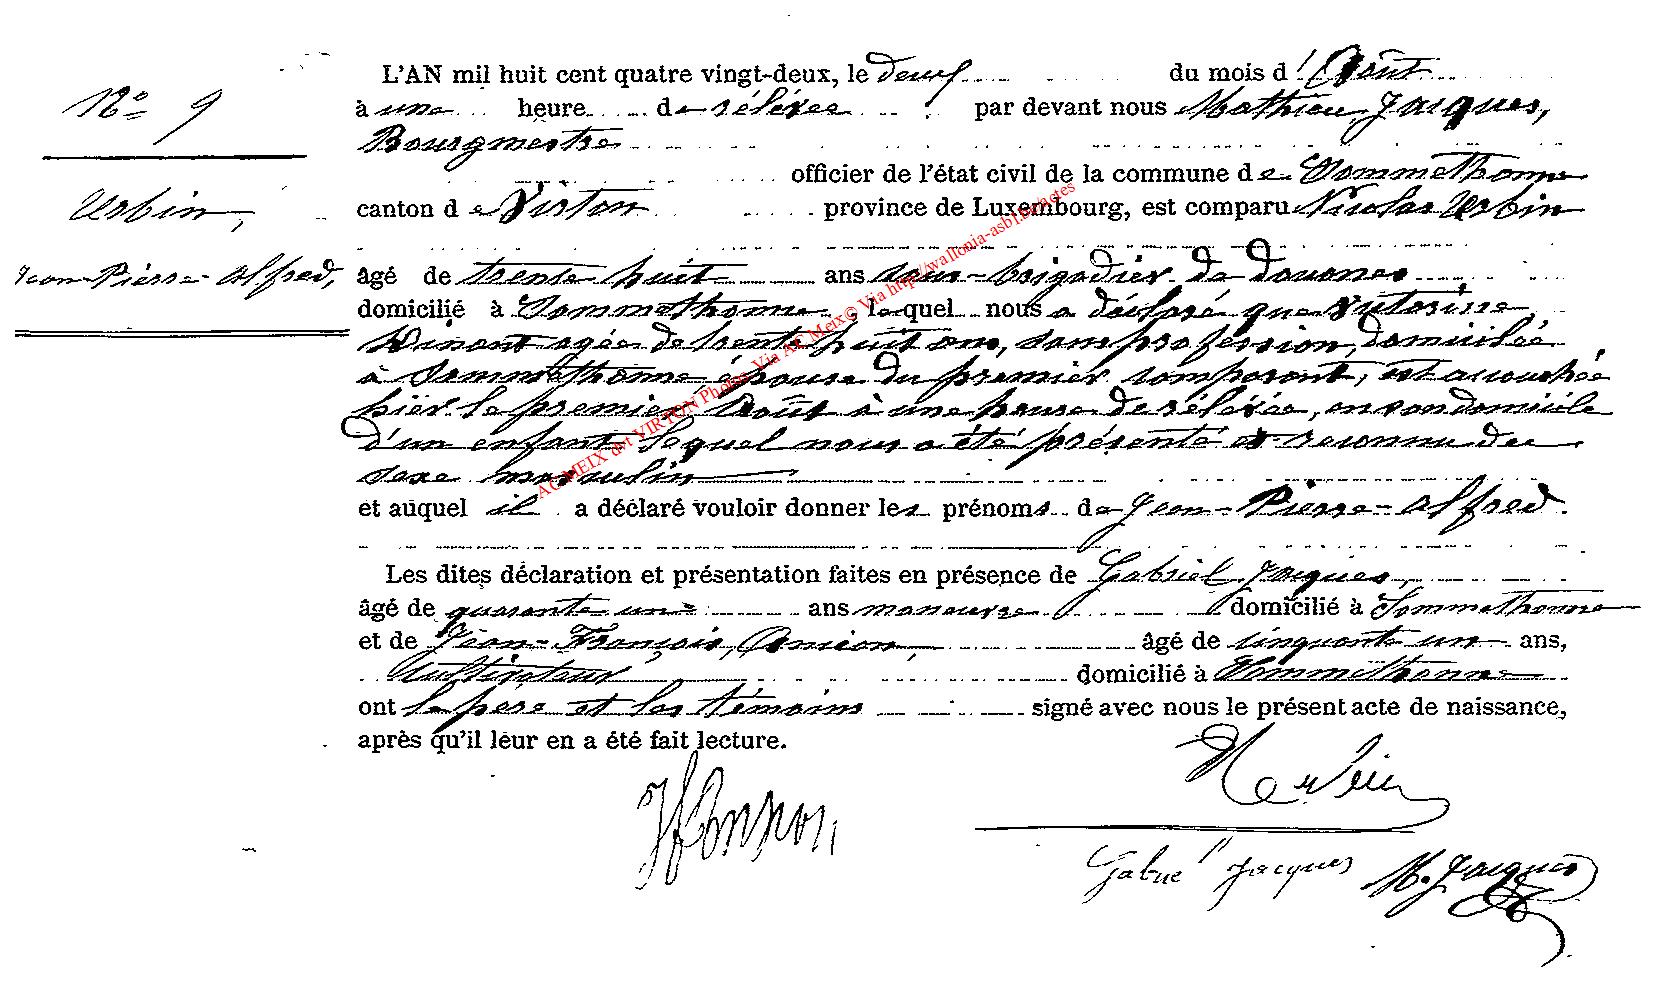 N° 9
Urbin,
Jean-Pierre-Alfred,
L'AN mil huit cent quatre vingt-deux, le deux du mois d'Août
à une heure de rélévée par devant nous Mathieu Jacques,
Bourgmestre
officier de l'état civil de la commune de Sommethonne
canton de Virton province de Luxembourg, est comparu Nicolas Urbin
âgé de trente huit ans sous-brigadier de douanes
domicilié à Sommethonne, lequel nous a déclaré que Victorine
Dinant agée de trente huit ans, sans profession, domiciliée
à Sommethonne épouse du premier comparant, est accouchée
hier le premier Août à une heure de rélévée, en son domicile
d'un enfant lequel nous a été présenté et reconnu du
sexe masculin
et auquel il a déclaré vouloir donner les prénoms de Jean-Pierre-Alfred.
Les dites déclaration et présentation faites en présence de Gabriel Jacques,
âgé de quarante un ans manœuvre domicilié à Sommethonne
et de Jean-François, Amion, âgé de cinquante un ans,
Cultivateur domicilié à Sommethonne
ont le père et les témoins signé avec nous le présent acte de naissance,
après qu'il leur en a été fait lecture.
N urbin
Gabriel Jacques M. Jacques
AC MEIX dvt VIRTON Photos Via AC Meix© Via http://wallonia-asbl.be/notes